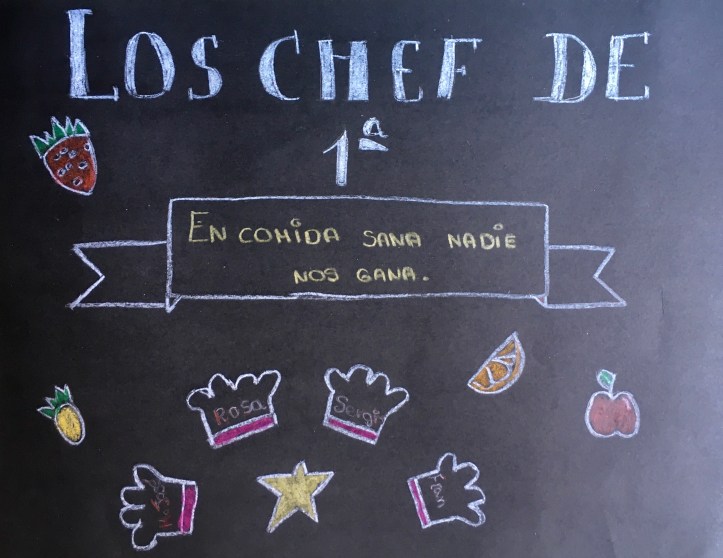 LOS CHEF DE
1ª
EN COMIDA SANA NADIE
NOS GANA.
Rosa
Sergi
Fran